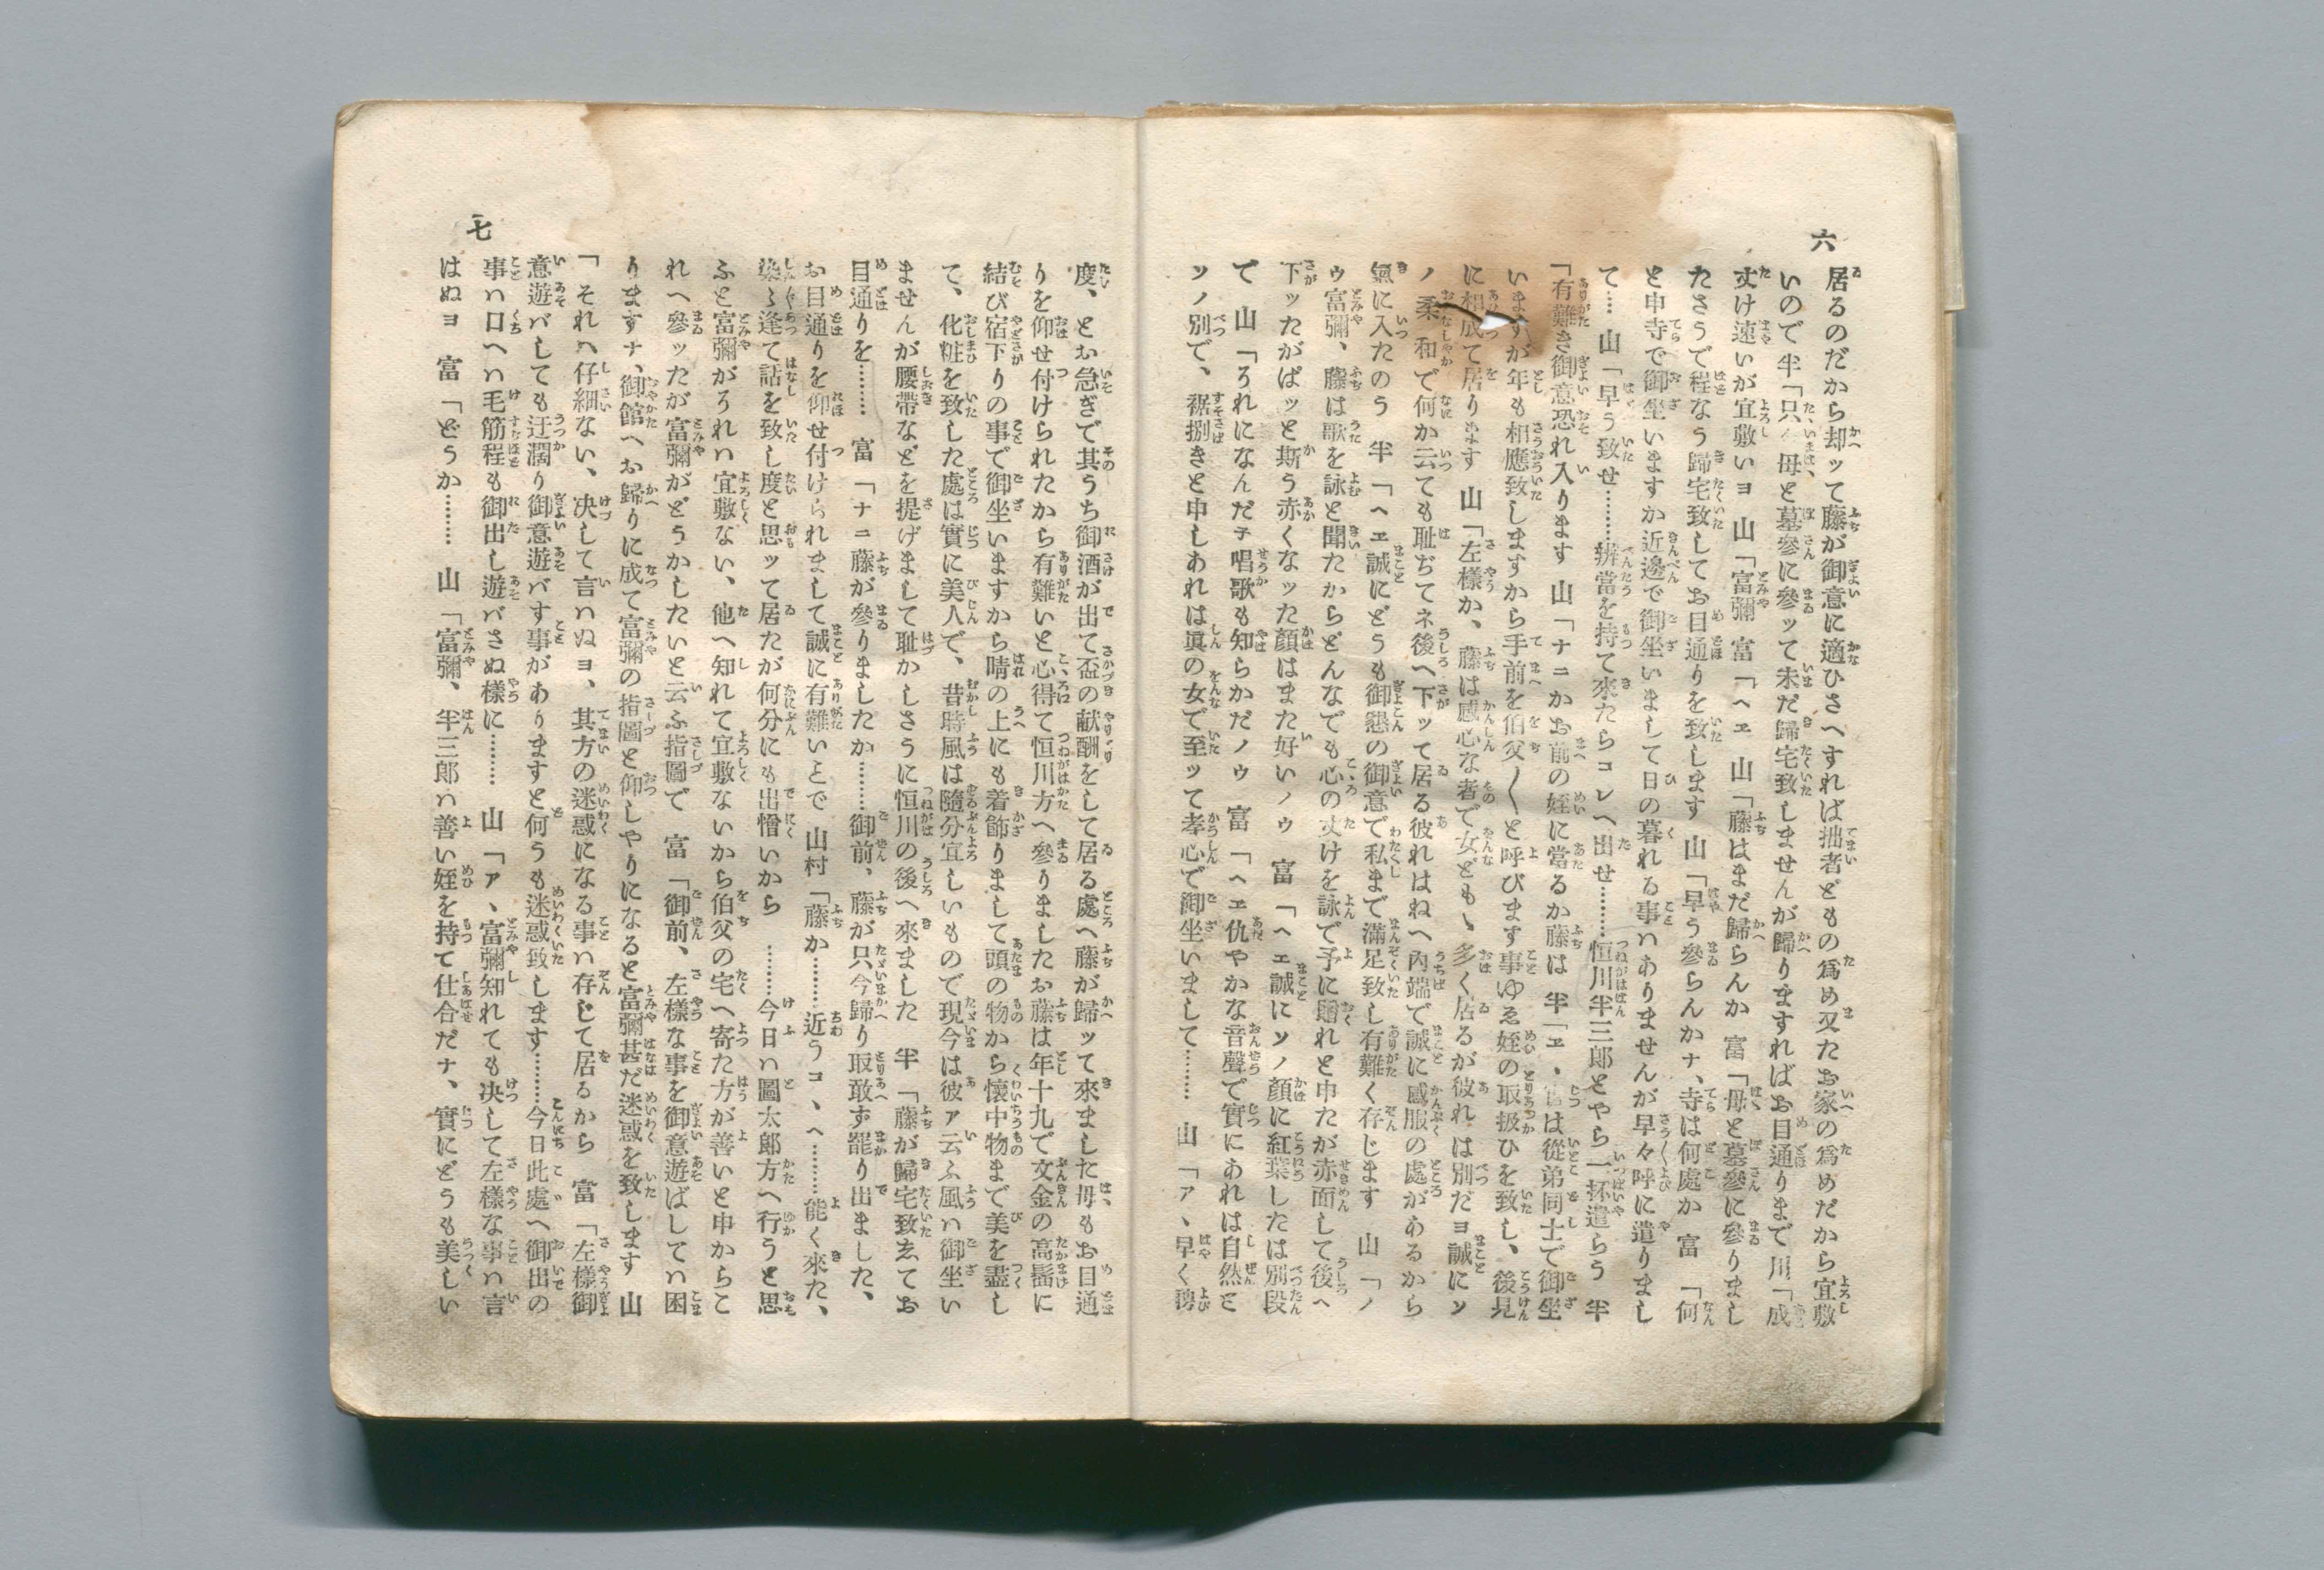 六
居るのだから却ッて藤が御意に適ひさへすれば拙者どもの爲め又たお家の爲めだから宜敷
いので 半「只今母と墓參に參ッて未だ歸宅致しませんが歸りますればお目通りまで 川「成
丈け速いが宜敷いヨ 山「富彌 富「ヘヱ 山「藤はまだ歸らんか 富「母と墓參に參りまし
たさうで程なう歸宅致してお目通りを致します 山「早う參らんかナ、寺は何處か 富「何
と申寺で御坐いますか近邊で御坐いまして日の暮れる事ハありませんが早々呼に遣りまし
て…… 山「早う致せ………辨當を持て來たらコレへ出せ………恒川半三郎とやら一抔遣らう 半
「有難き御意恐れ入ります 山「ナニかお前の姪に當るか藤は 半「ヱ、實は從弟同士で御坐
いますが年も相應致しますから手前を伯父〱と呼びます事ゆゑ姪の取扱ひを致し、後見
に相成て居ります 山「左樣か、藤は感心な者で女ども多く居るが彼れは別だヨ誠にソ
ノ柔和で何か云ても耻ぢてネ後へ下ッて居る彼れはねへ內端で誠に感服の處があるから
氣に入たのう 半「ヘヱ誠にどうも御懇の御意で私まで滿足致し有難く存じます 山「ノ
ウ富彌、藤は歌を詠と聞たからどんなでも心の丈けを詠で予に贈れと申たが赤面して後へ
下ッたがぱッと斯う赤くなッた顏はまた好いノウ 富「ヘヱ誠にソノ顏に紅葉したは別段
で 山「ろれになんだヂ唱歌も知らかだノウ 富「ヘヱ仇やかな音聲で實にあれは自然と
ソノ別で、裾捌きと申しあれは眞の女で至ッて孝心で御坐いまして……… 山「ア、早く聘
度、とお急ぎで其うち御酒が出て盃の献酬をして居る處へ藤が歸ッて來ました母もお目通
りを仰せ付けられたから有難いと心得て恒川方へ參りましたお藤は年十九で文金の高髷に
結び宿下りの事で御坐いますから晴の上にも着飾りまして頭の物から懷中物まで美を盡し
て、化粧を致した處は實に美人で、昔時風は隨分宜しいもので現今は彼ァ云ふ風ハ御坐い
ませんが腰帶などを提げまして耻かしさうに恒川の後へ來ました 半「藤が歸宅致ゑてお
目通りを……… 富「ナニ藤が參りましたか………御前、藤が只今歸り取敢す罷り出ました、
お目通りを仰せ付けられまして誠に有難いとで 山村「藤か………近うコ、へ………能く來た、
染々逢て話を致し度と思ッて居たが何分にも出憎いから ………今日ハ圖太郎方へ行うと思
ふと富彌がろれハ宜敷ない、他へ知れて宜敷ないから伯父の宅へ寄た方が善いと申からこ
れへ參ッたが富彌がどうかしたいと云ふ指圖で 富「御前、左樣な事を御意遊ばしてハ困
りますナ、御館へお歸りに成て富彌の指圖と仰しやりになると富彌甚だ迷惑を致します 山
「それハ仔細ない、决して言ハぬヨ、其方の迷惑になる事ハ存じて居るから 富「左樣御
意遊バしても迂濶り御意遊バす事がありますと何うも迷惑致します………今日此處へ御出の
事ハ口へハ毛筋程も御出し遊バさぬ樣に……… 山「ア、富彌知れても决して左樣な事ハ言
はぬヨ 富「どうか……… 山「富彌、半三郎ハ善い姪を持て仕合だナ、實にどうも美しい
七